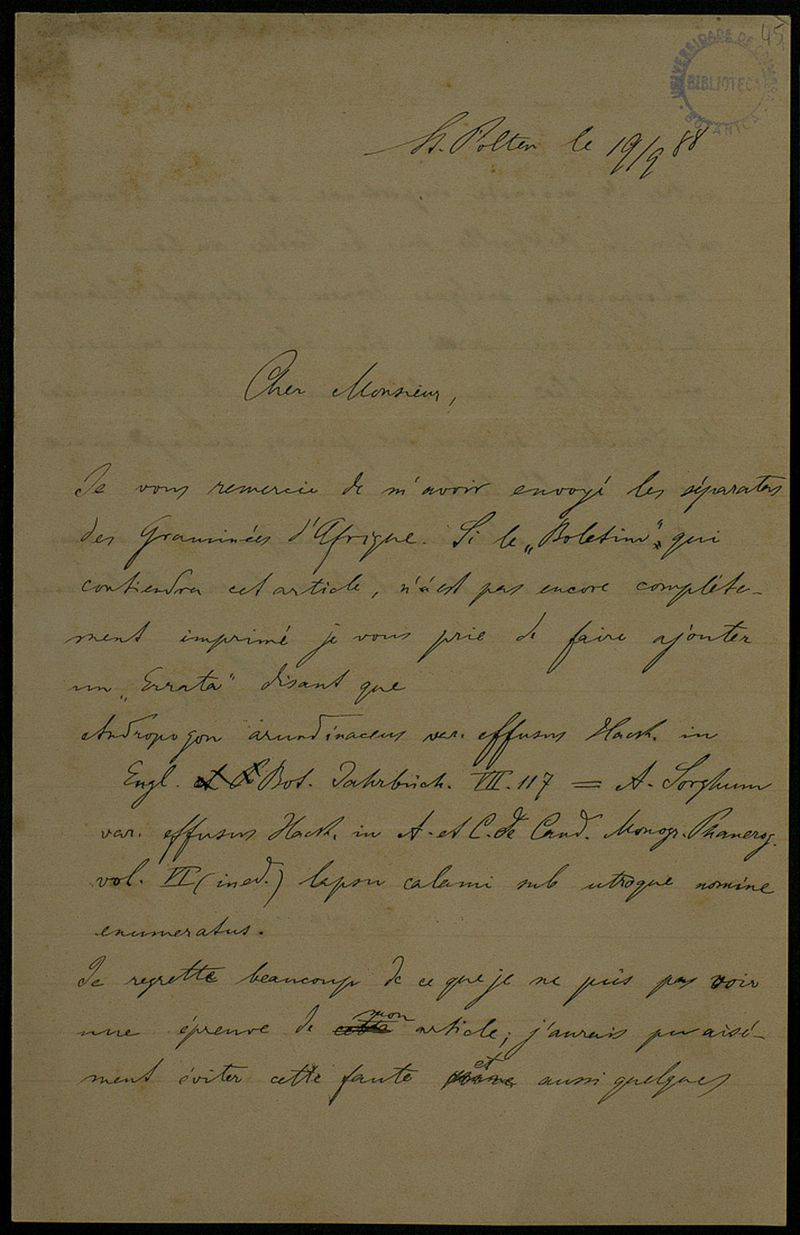 45
UNIVERSIDADE DE COIMBRA
BIBLIOTECA
BOTANICA
St. Pölten le 19/9 88
Cher Monsieur,
Je vous remercie de m'avoir envoyé les séparates
des Graminées d'Afrique. Si le „Boletim" qui
contiendra cet article, n'est pas encore complète-
ment imprimé je vous prie de faire ajouter
un „Errata" disant que
Andropogon arundinaceus var. effusus Hack. in
Engl. Bot. Jahrbüch. VII. 117 = A. Sorghum
var. effusus Hack. in A. et C. de Cand. Monogr. Phanerog.
vol. VI (ined.) lapsu calami sub utroque nomine
enumeratus.
Je regrette beaucoup de ce que je ne puis pas voir
une épreuve de mon article; j'aurais pu aisé-
ment éviter cette faute et aussi quelques